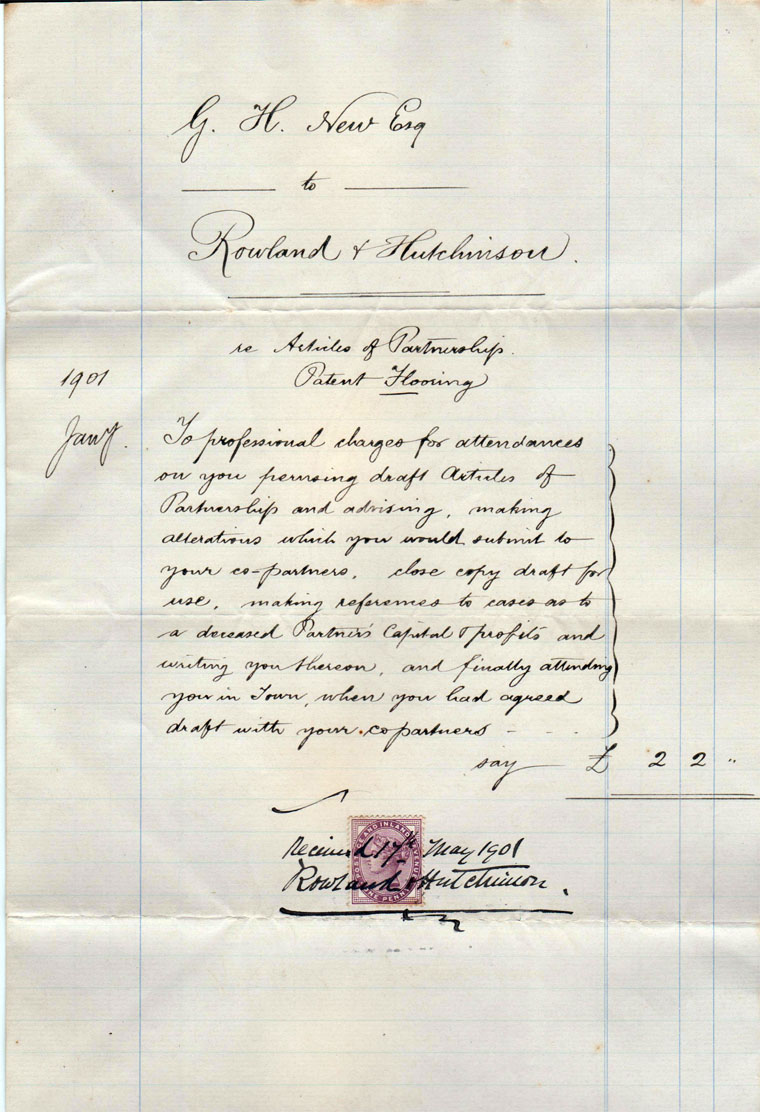 G. H. New Esq
to
Rowland & Hutchinson.
re Articles of Partnership.
1901
Patent Flooring
Jany.
To professional charges for attendances
on you perusing draft Articles of
Partnership and advising, making
alterations which you would submit to
your co-partners, close copy draft for
use, making references to cases as to
a deceased Partner's Capital & profits and
writing you thereon, and finally attending
you in Town, when you had agreed
draft with your copartners - - -
say £ 2 2 "
POSTAGE AND INLAND REVENUE
ONE PENNY
Received 17th May 1901
Rowland & Hutchinson.